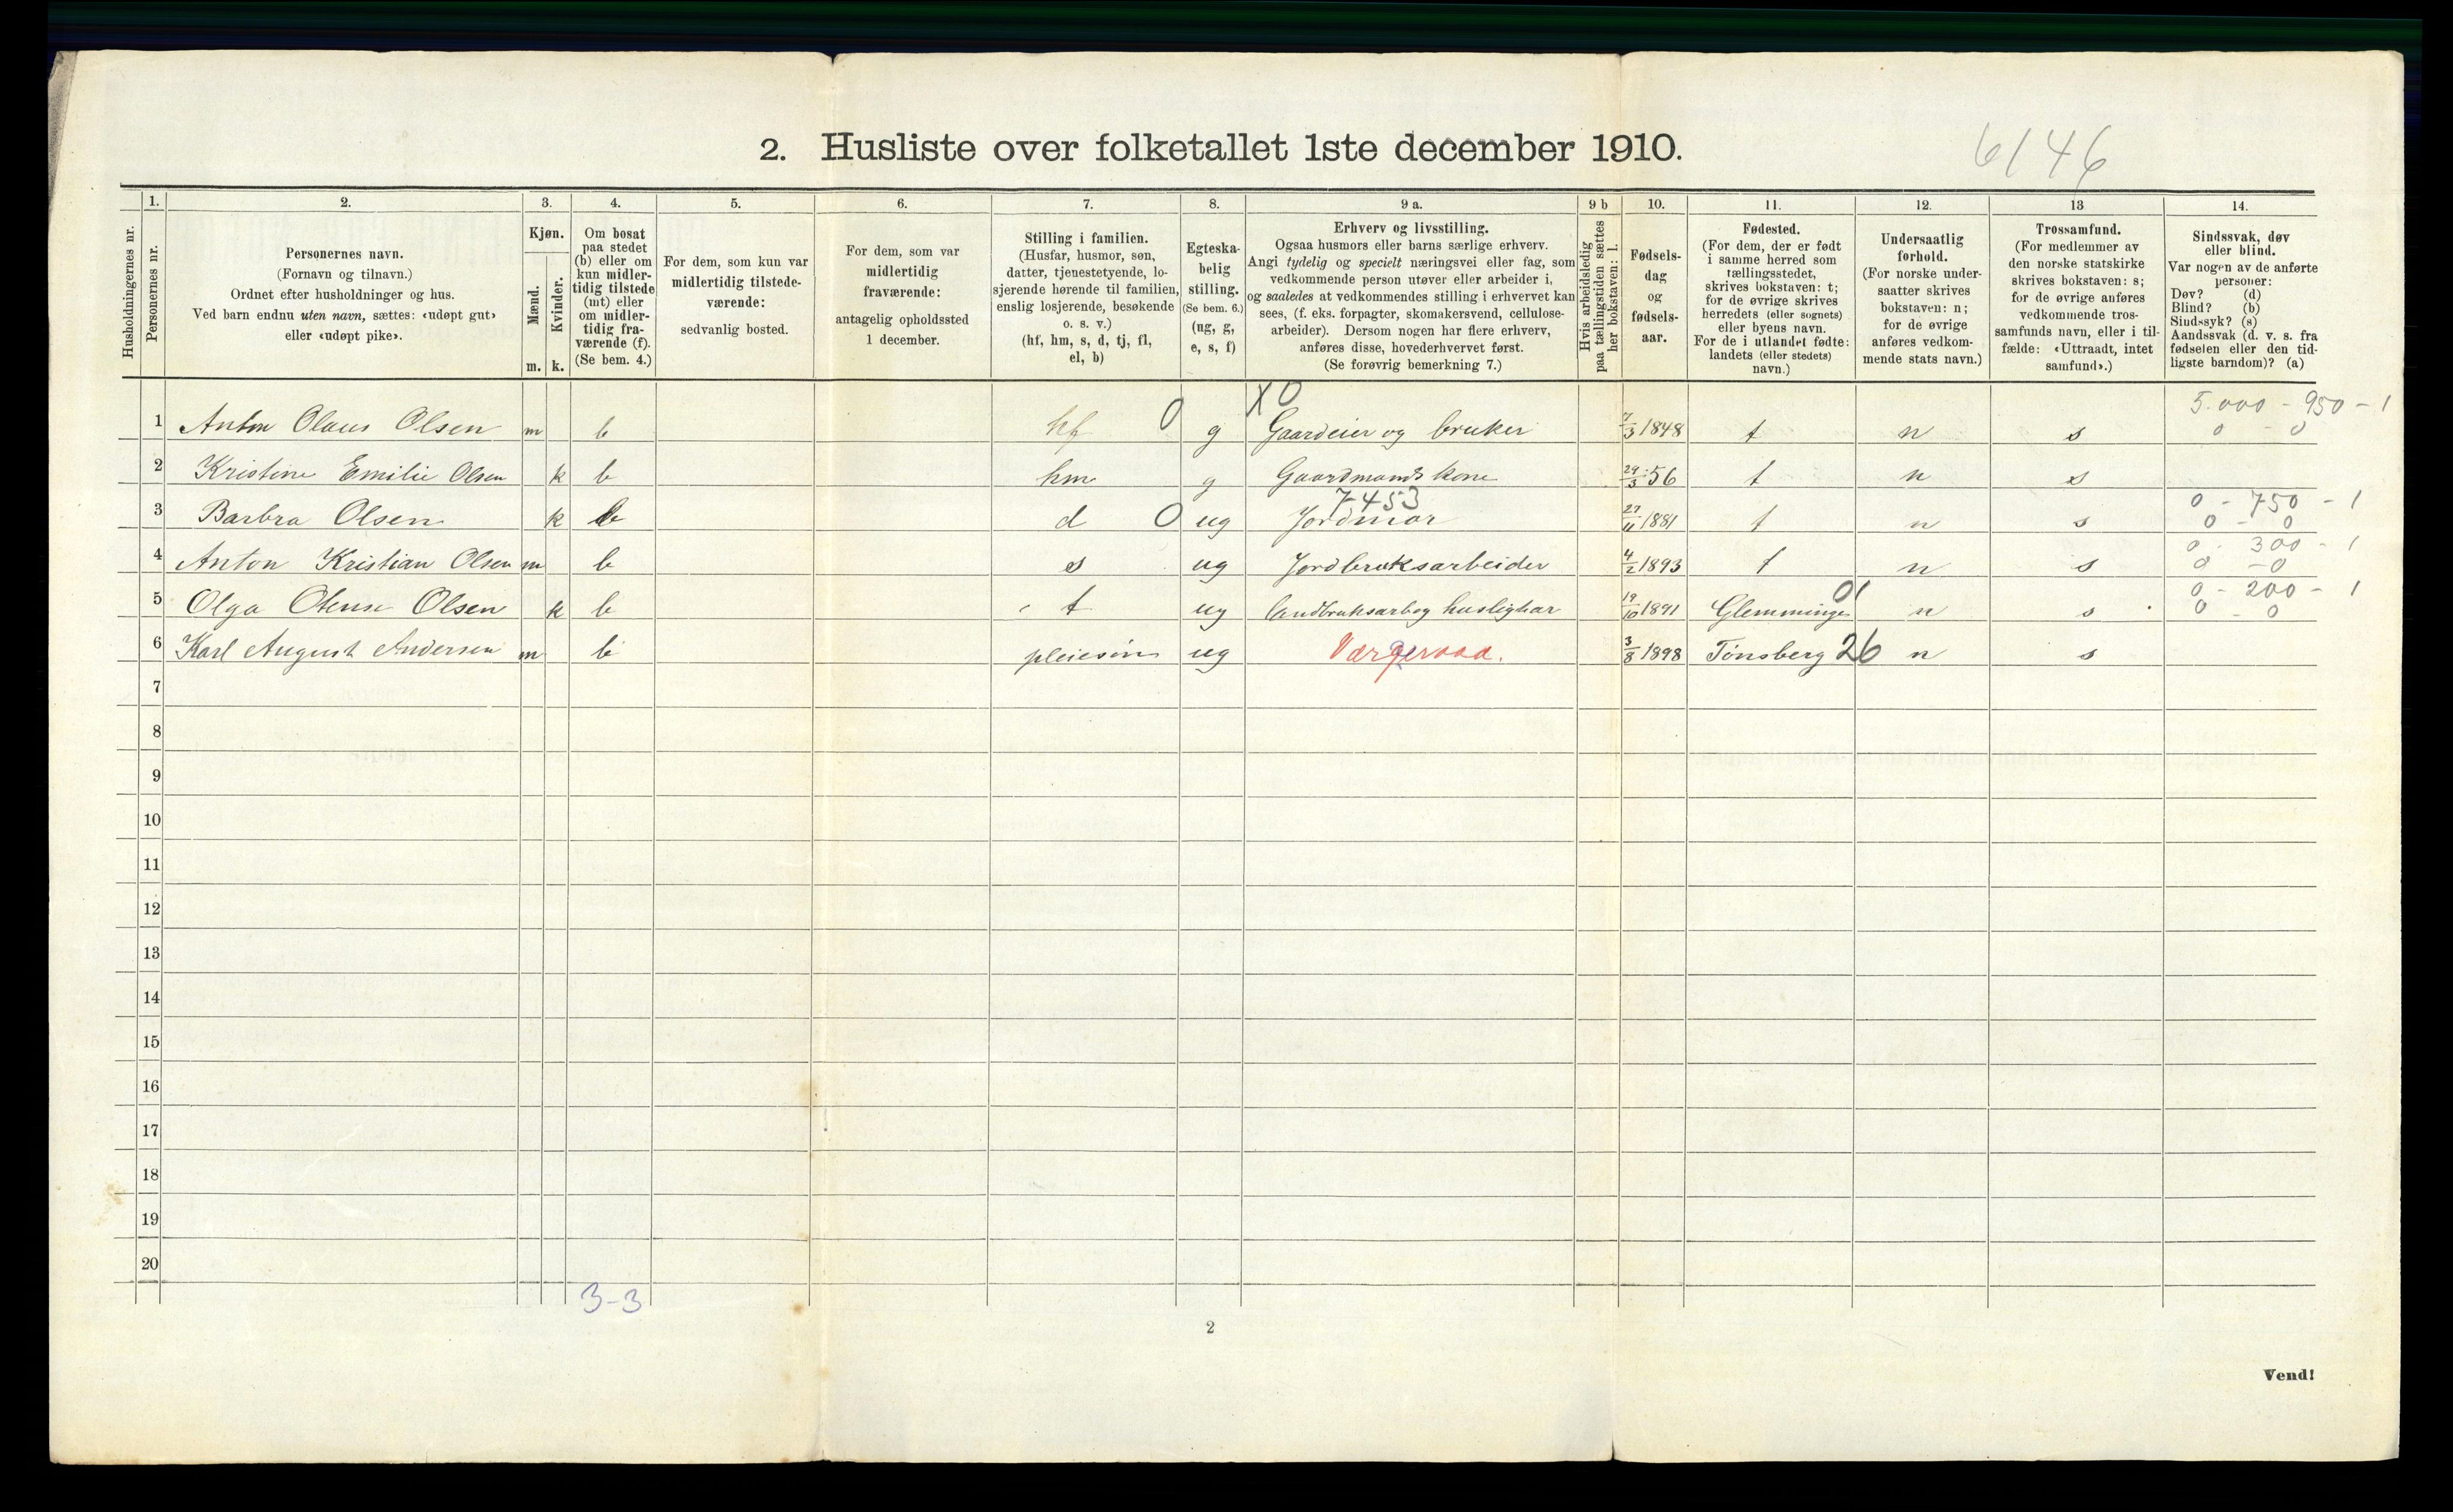 2. Husliste over folketallet 1ste december 1910.
6146
Husholdningernes nr.
1.
Personernes nr.
2.
Personernes navn.
(Fornavn og tilnavn.)
Ordnet efter husholdninger og hus.
Ved barn endnu uten navn, sættes: «udøpt gut»
eller «udøpt pike».
3.
Kjøn.
Mænd.
Kvinder.
m. k.
4.
Om bosat
paa stedet
(b) eller om
kun midler-
tidig tilstede
(mt) eller
om midler-
tidig fra-
værende (f).
(Se bem. 4.)
5.
For dem, som kun var
midlertidig tilstede-
værende:
sedvanlig bosted.
6.
For dem, som var
midlertidig
fraværende:
antagelig opholdssted
1 december.
7.
Stilling i familien.
(Husfar, husmor, søn,
datter, tjenestetyende, lo-
sjerende hørende til familien,
enslig losjerende, besøkende
o. s. v.)
(hf, hm, s, d, tj, fl,
el, b)
8.
Egteska-
belig
stilling.
(Se bem. 6.)
(ug, g,
e, s, f)
9 a.
Erhverv og livsstilling.
Ogsaa husmors eller barns særlige erhverv.
Angi tydelig og specielt næringsvei eller fag, som
vedkommende person utøver eller arbeider i,
og saaledes at vedkommendes stilling i erhvervet kan
sees, (f. eks. forpagter, skomakersvend, cellulose-
arbeider). Dersom nogen har flere erhverv,
anføres disse, hovederhvervet først.
(Se forøvrig bemerkning 7.)
9 b
Hvis arbeidsledig
paa tællingstiden sættes
her bokstaven: l.
10.
Fødsels-
dag
og
fødsels-
aar.
11.
Fødested.
(For dem, der er født
i samme herred som
tællingsstedet,
skrives bokstaven: t;
for de øvrige skrives
herredets (eller sognets)
eller byens navn.
For de i utlandet fødte:
landets (eller stedets)
navn.)
12.
Undersaatlig
forhold.
(For norske under-
saatter skrives
bokstaven: n;
for de øvrige
anføres vedkom-
mende stats navn.)
13
Trossamfund.
(For medlemmer av
den norske statskirke
skrives bokstaven: s;
for de øvrige anføres
vedkommende tros-
samfunds navn, eller i til-
fælde: «Uttraadt, intet
samfund».)
14.
Sindssvak, døv
eller blind.
Var nogen av de anførte
personer:
Døv? (d)
Blind? (b)
Sindssyk? (s)
Aandssvak (d. v. s. fra
fødselen eller den tid-
ligste barndom)? (a)
X0 5.000 - 950 - 1
1 Anton Olaus Olsen m b hf 0 g Gaardeier og bruker 7/3 1848 t n s 0 - 0
2 Kristine Emilie Olsen k b hm g Gaardmands kone 29/3 56 t n s
7453 0 - 750 - 1
3 Barbra Olsen k b d 0 ug Jordmor 27/11 1881 t n s 0 - 0
0 - 300 - 1
4 Anton Kristian Olsen m b s ug Jordbruksarbeider 4/2 1893 t n s 0 - 0
01 0 - 200 - 1
5 Olga Otense Olsen k b t ug landbruksarb og husligbar 19/10 1891 Glemminge n s 0 - 0
6 Karl August Andersen m b pleiesøn ug Værgeraad. 3/8 1898 Tønsberg 26 n s
7
8
9
10
11
12
13
14
15
16
17
18
19
20
3-3
2
Vend!